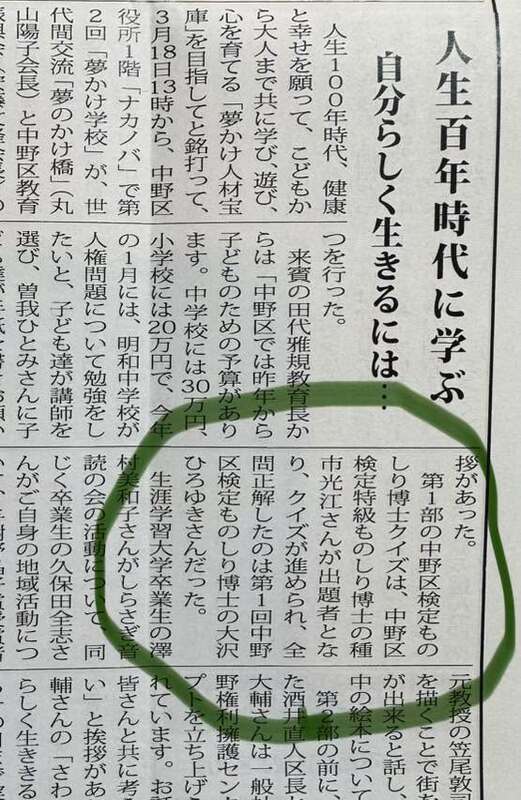 人生百年時代に学ぶ
自分らしく生きるには…
人生100年時代、健康
と幸せを願って、こどもか
ら大人まで共に学び、遊び、
心を育てる「夢かけ人材宝
庫」を目指してと銘打って、
3月18日13時から、中野区
役所1階「ナカノバ」で第
2回「夢かけ学校」が、世
代間交流「夢のかけ橋」(丸
山陽子会長)と中野区教育
つを行った。
来賓の田代雅規教育長か
らは「中野区では昨年から
子どものための予算があり
ます。中学校には30万円、
小学校には20万円で、今年
の1月には、明和中学校が
人権問題について勉強をし
たいと、子ども達が講師を
選び、曽我ひとみさんに子
拶があった。
第1部の中野区検定もの
しり博士クイズは、中野区
検定特級ものしり博士の種
市光江さんが出題者とな
り、クイズが進められ、全
問正解したのは第1回中野
区検定ものしり博士の大沢
ひろゆきさんだった。
生涯学習大学卒業生の澤
村美和子さんがしらさぎ音
読の会の活動について、同
じく卒業生の久保田全志さ
んがご自身の地域活動につ
元教授の笠尾敦司
を描くことで街を
が出来ると話し、
中の絵本について
第2部の前に、
た酒井直人区長か
大輔さんは一般社
野権利擁護センタ
プトを立ち上げら
れています。お話
皆さんと共に考え
い」と挨拶があ
輔さんの「さわ
らしく生ききる